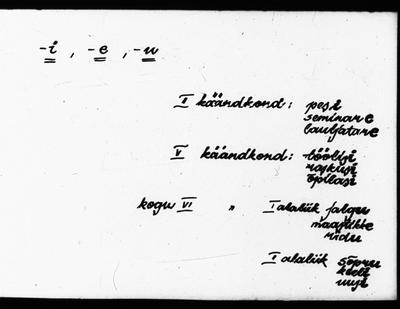 -i , -e , -u
II käändkond: pesi
seminare
lauljatare
V käändkond: töölisi
raskusi
õpilasi
kogu VI " I alaliik jalgu
maastikke
ridu
II alaliik sõpru
keeli